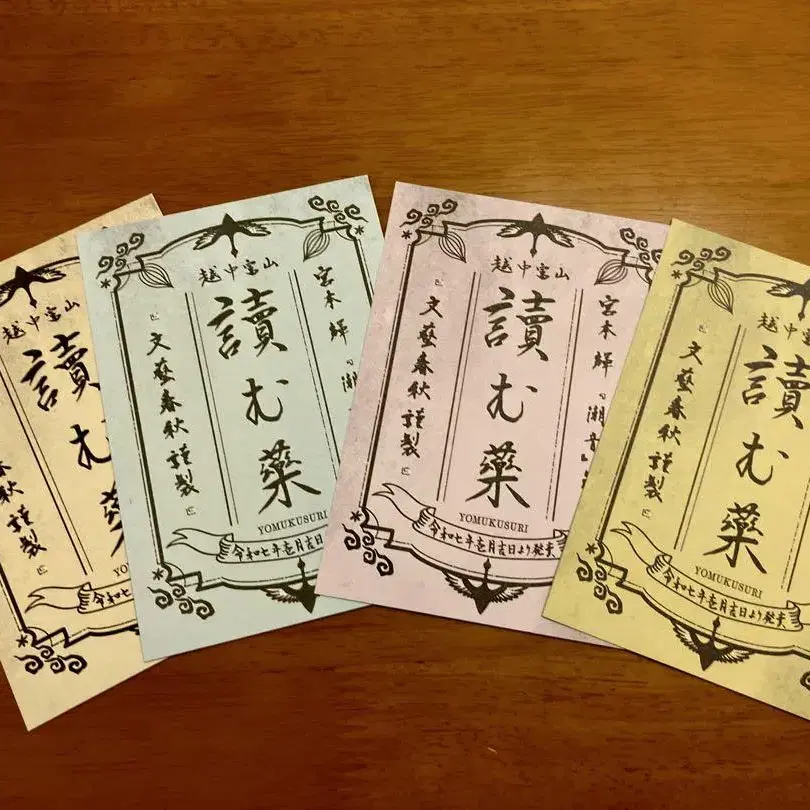 越中富山
讀む藥
春秋謹製
YOMU
令和七年
越中富山
宮本輝
讀む藥
文藝春秋謹製
YOMUKUSURI
令和七年壱月吉日
越中富山
宮本輝 潮音
讀む藥
文藝春秋謹製
YOMUKUSURI
令和七年壱月吉日より発売
越中富
讀む藥
文藝春秋謹製
YOMUKUSURI
令和七年壱月吉日より発売